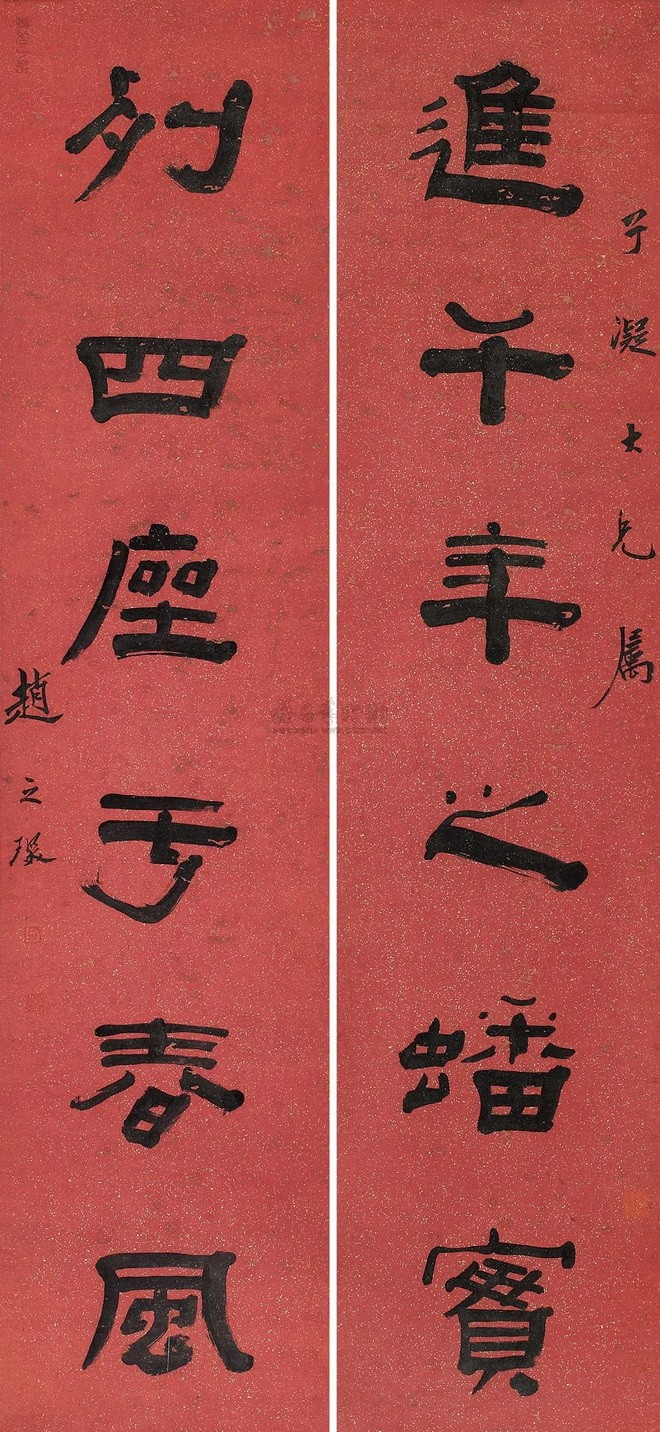 子凝大兄属
進千年之蟠實
列四座于春風
趙之琛